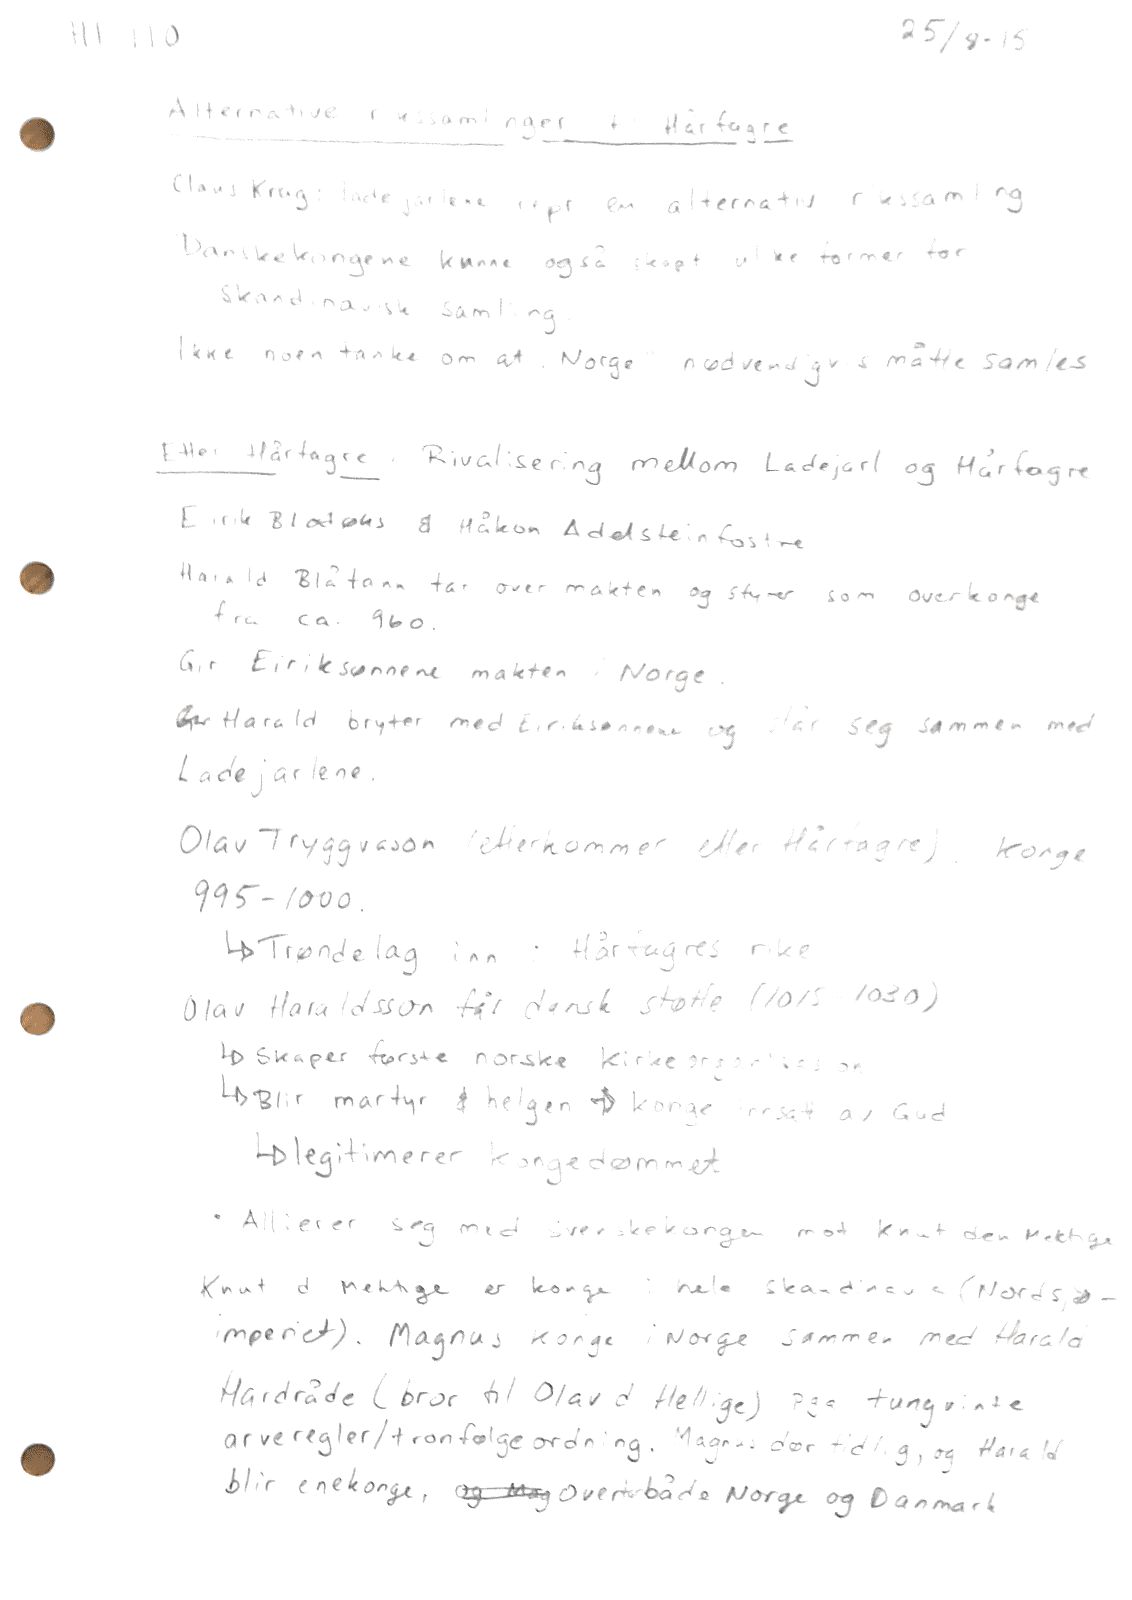 HI 110 25/8-15
Alternative rikssamlinger + Hårfagre
Claus Krag: ladejarlene repr en alternativ rikssamling
Danskekongene kunne også skapt ulike former for
skandinavisk samling.
Ikke noen tanke om at "Norge" nødvendigvis måtte samles
Etter Hårfagre. Rivalisering mellom Ladejarl og Hårfagre
Eirik Blodøks & Håkon Adelsteinfostre
Harald Blåtann tar over makten og styrer som overkonge
fra ca. 960.
Gir Eiriksønnene makten i Norge.
Harald bryter med Eiriksønnene og slår seg sammen med
Ladejarlene.
Olav Tryggvason (etterkommer etter Hårfagre). Konge
995-1000.
↳ Trøndelag inn i Hårfagres rike
Olav Haraldsson får dansk støtte (1015 1030)
↳ Skaper første norske kirkeorganisasjon
↳ Blir martyr & helgen → konge innsatt av Gud
↳ legitimerer kongedømmet
• Allierer seg med svenskekongen mot Knut den Mektige
Knut d Mektige er konge i hele skandinavia (Nordsjø-
imperiet). Magnus konge i Norge sammen med Harald
Hardråde (bror til Olav d Hellige) pga tungvinte
arveregler/tronfølgeordning. Magnus dør tidlig, og Harald
blir enekonge, over både Norge og Danmark